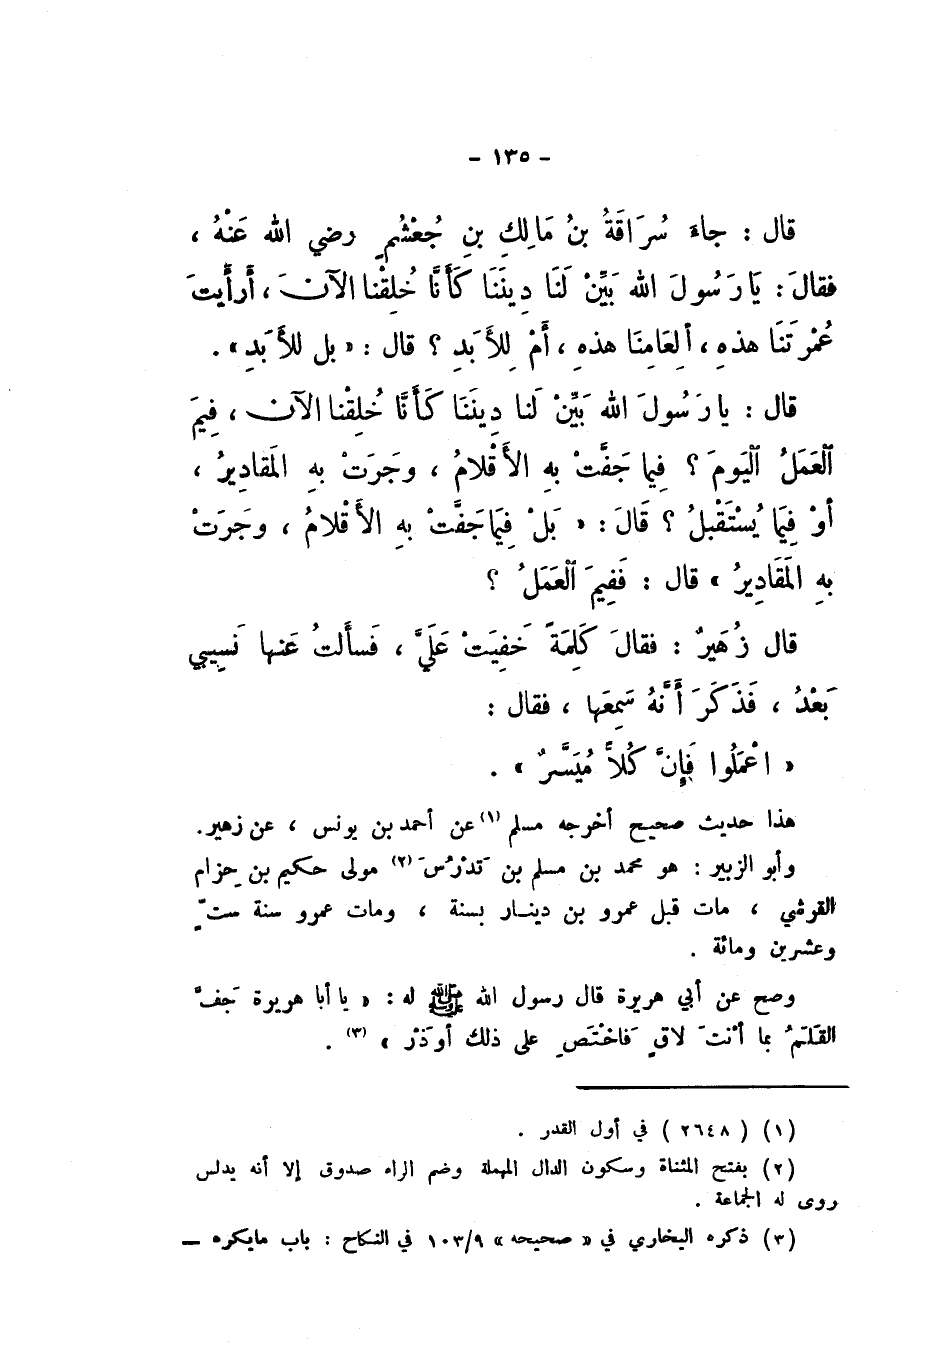 - ١٣٥ -
قال : جاءَ سُرَاقَةُ بنُ مَالِكِ بنِ جُعْشُمٍ رضي الله عَنْهُ ،
فقالَ : يَا رَسُولَ الله بَيِّنْ لَنَا دِينَنَا كَأَنَّا خُلِقْنا الآنَ ، أَرأَيتَ
عُمْرَتَنَا هذهِ ، أَلِعَامِنَا هذهِ ، أَمْ لِلأَبَدِ ؟ قال : « بل للأَبَدِ » .
قال : يا رَسُولَ الله بَيِّنْ لَنا دِينَنَا كَأَنَّا خُلِقْنا الآنَ ، فِيمَ
ٱلْعَمَلُ ٱلْيَومَ ؟ فِيما جَفَّتْ بهِ الأَقْلامُ ، وجَرَتْ بهِ المَقادِيرُ ،
أوْ فِيمَا يُسْتَقْبلُ ؟ قَالَ : « بَلْ فِيمَا جَفَّتْ بهِ الأَقْلامُ ، وجَرَتْ
بهِ المَقَادِيرُ » قال : فَفِيمَ ٱلْعَمَلُ ؟
قال زُهَيرٌ : فقالَ كَلِمَةً خَفِيَتْ عَلَيَّ ، فَسأَلتُ عَنها نَسِيبي
بَعْدُ ، فَذَكَرَ أَنَّهُ سَمِعَها ، فقال :
« اعْمَلُوا فَإِنَّ كُلاًّ مُيَسَّرٌ » .
هذا حديث صحيح أخرجه مسلم (١) عن أحمد بن يونس ، عن زهير .
وأبو الزبير : هو محمد بن مسلم بن تَدْرُسَ (٢) مولى حكيم بن حِزام
القرشي ، مات قبل عمرو بن دينار بسنة ، ومات عمرو سنة ستٍّ
وعشرين ومائة .
وصح عن أبي هريرة قال رسول الله ﷺ له : « يا أبا هريرة جَفَّ
القَلَمُ بما أنْتَ لاقٍ فَاخْتَصِ على ذلك أو ذَرْ » (٣) .
(١) ( ٢٦٤٨ ) في أول القدر .
(٢) بفتح المثناة وسكون الدال المهملة وضم الراء صدوق إلا أنه يدلس
روى له الجماعة .
(٣) ذكره البخاري في « صحيحه » ١٠٣/٩ في النكاح : باب مايكره —